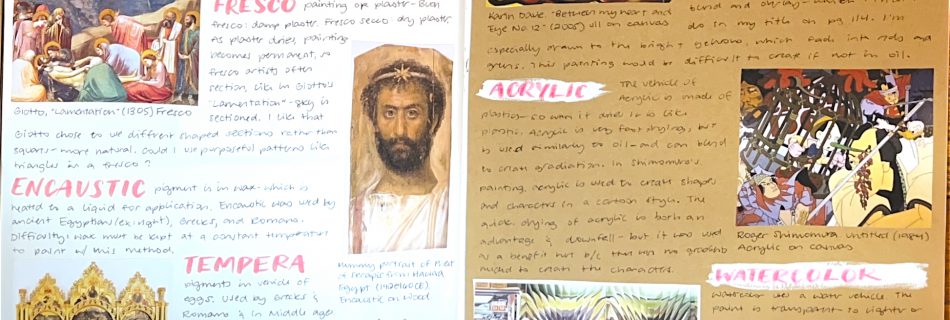 FRESCO painting on plaster - Buon
fresco: damp plaster. Fresco secco dry plaster
As plaster dries, painting
becomes permanent, so
fresco artists often
section, like in Giotto's
"Lamentation" - sky is
sectioned. I like that
Giotto, "Lamentation" (1305) Fresco
Giotto chose to use different shaped sections rather than
squares - more natural. Could I use purposeful patterns like
triangles in a fresco?
ENCAUSTIC pigment is in wax - which is
heated to a liquid for application. Encaustic was used by
ancient Egyptian (ex. right), Greeks, and Romans.
Difficulty: wax must be kept at a constant temperature
to paint w/ this method.
Mummy portrait of Priest
of Serapis from Hawara
Egypt (140-160CE)
Encaustic on Wood
TEMPERA
pigments in vehicle of
eggs. Used by Greeks &
Romans & in Middle ages
Karin Davie. "Between my heart and
Eye No. 12" (2005) oil on canvas
blend and overlay -
do in my title on pg 114. I'm
especially drawn to the bright yellows which fade into reds and
greens. This painting would be difficult to create if not in oil.
ACRYLIC The vehicle of
Acrylic is made of
plastic - so when it dries it is like
plastic. Acrylic is very fast drying, but
is used similarly to oil - and can blend
to create gradation. In Shimomura's
painting, acrylic is used to create shapes
and characters in a cartoon style. The
quick drying of acrylic is both an
advantage & downfall - but it was used
as a benefit here b/c there was no gradation
needed to create the characters.
Roger Shimomura Untitled (1984)
Acrylic on canvas
WATERCOLOR
Watercolor uses a water vehicle. The
paint is transparent - so lighter or